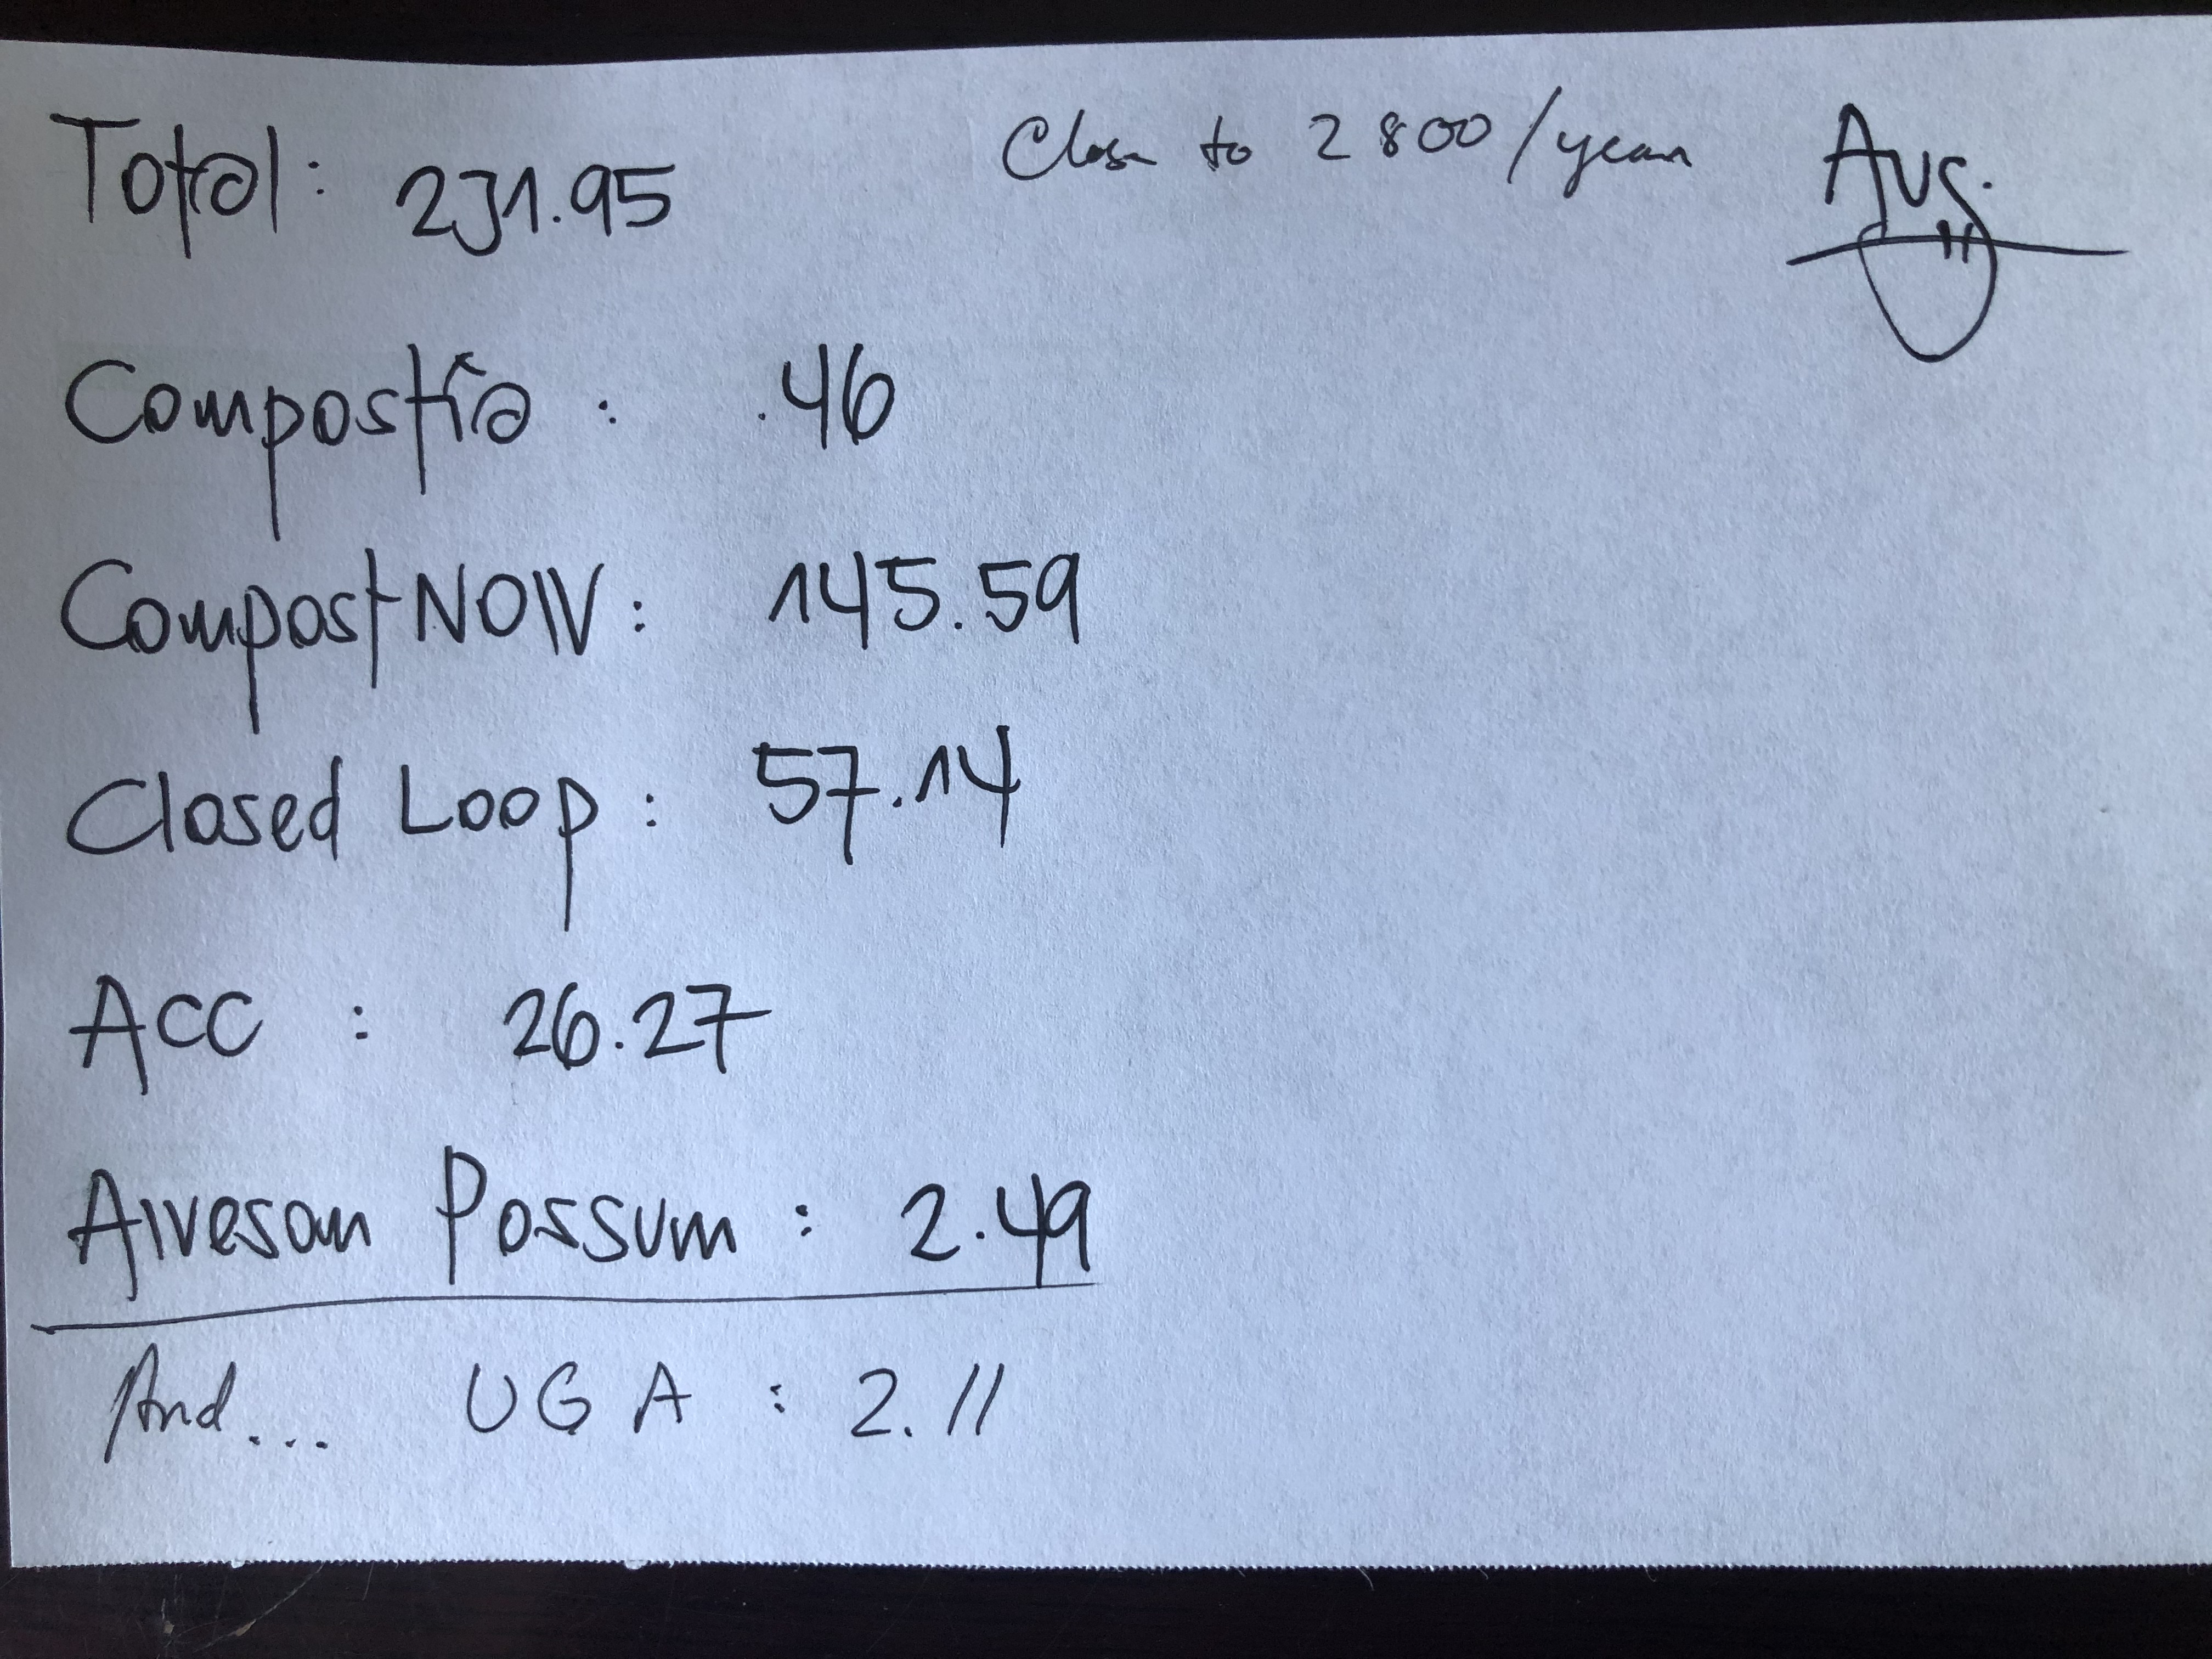 Total: 231.95 Close to 2800/year Aug.
Compostia: .46
CompostNOW: 145.59
Closed Loop: 57.14
ACC: 26.27
Awesom Possum: 2.49
And... UGA: 2.11